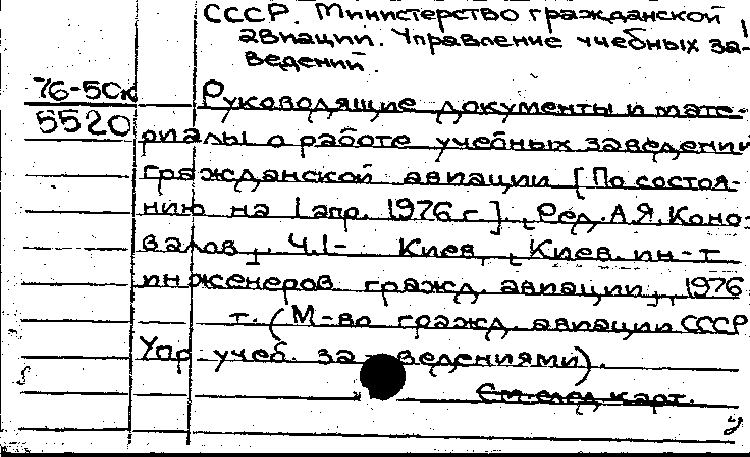 СССР. Министерство гражданской
авиации. Управление учебных за-
ведений.
76-50к
5520
Руководящие документы и мате-
риалы о работе учебных заведений
гражданской авиации [По состоя-
нию на 1 апр. 1976 г.]. Ред. А.Я. Коно-
валов. Ч.1- Киев, Киев. ин-т
инженеров гражд. авиации, 1976
т. (М-во гражд. авиации СССР
Упр. учеб. за- ведениями).
См. след. карт.